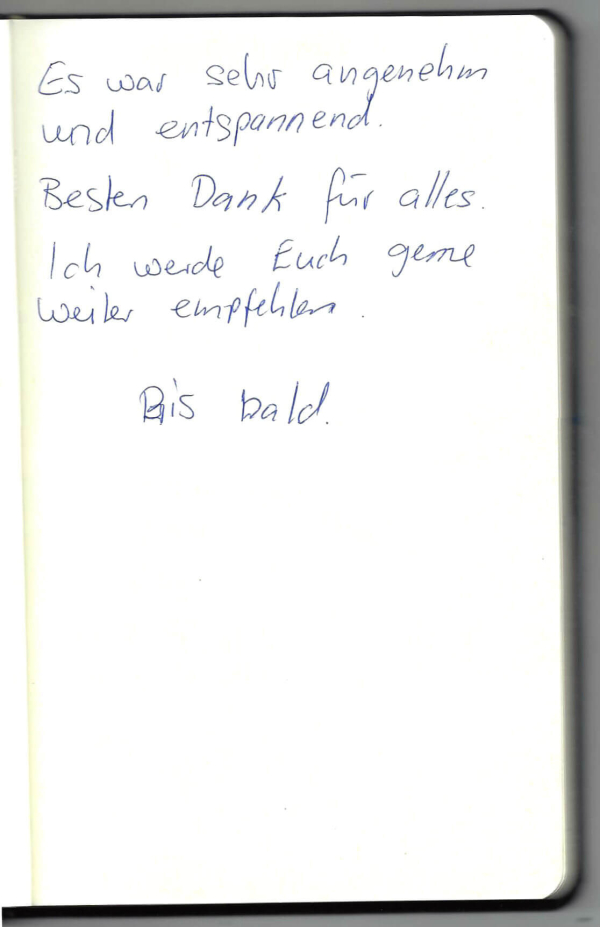 Es war sehr angenehm
und entspannend.
Besten Dank für alles.
Ich werde Euch gerne
weiter empfehlen.
Bis bald.